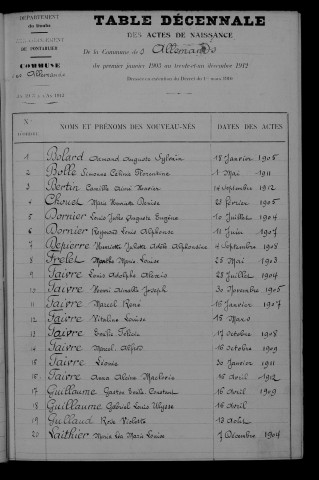 DÉPARTEMENT
du Doubs
ARRONDISSEMENT
DE PONTARLIER
COMMUNE
des Allemands
de 1903 à 1912
TABLE DÉCENNALE
DES ACTES DE NAISSANCE
De la Commune des Allemands
du premier janvier 1903 au trente-et-un décembre 1912
Dressée en exécution du Décret du 1er mars
Nos
NOMS ET PRÉNOMS DES NOUVEAU-NÉS
DATES DES ACTES
1 Bolard Armand Auguste Sylvain 18 Janvier 1905
2 Bolle Simonne Célina Florentine 1 Mai 1911
3 Bertin Camille Aimé Marius 14 Septembre 1912
4 Chouet Marie Denise 21 février 1905
5 Dornier Louis Jules Auguste Eugène 10 Juillet 1904
6 Dornier Raymond Louis Alphonse 11 Juin 1907
7 Depierre Henriette Juliette Alphonsine 4 Septembre 1908
8 Frelet Marthe Marie Louise 25 Mai 1903
9 Faivre Louis Adolphe Alexis 28 Juillet 1904
10 Faivre Henri Aimable Joseph 30 Novembre 1905
11 Faivre Marcel René 16 Janvier 1907
12 Faivre Vitaline Louise 15 Mars
13 Faivre Emile Félicien 17 Octobre 1908
14 Faivre Marcel Alfred 16 Octobre 1909
15 Faivre Léonie 30 Janvier 1911
16 Faivre Anna 18 Avril 1912
17 Guillaume Gaston Emile Constant 16 Avril 1909
18 Guillaume Gabriel Louis Ulysse 16 Avril
19 Gullaud Rose Violette 13 Août
20 Laithier Maria Léa Marie Louise 7 Décembre 1904